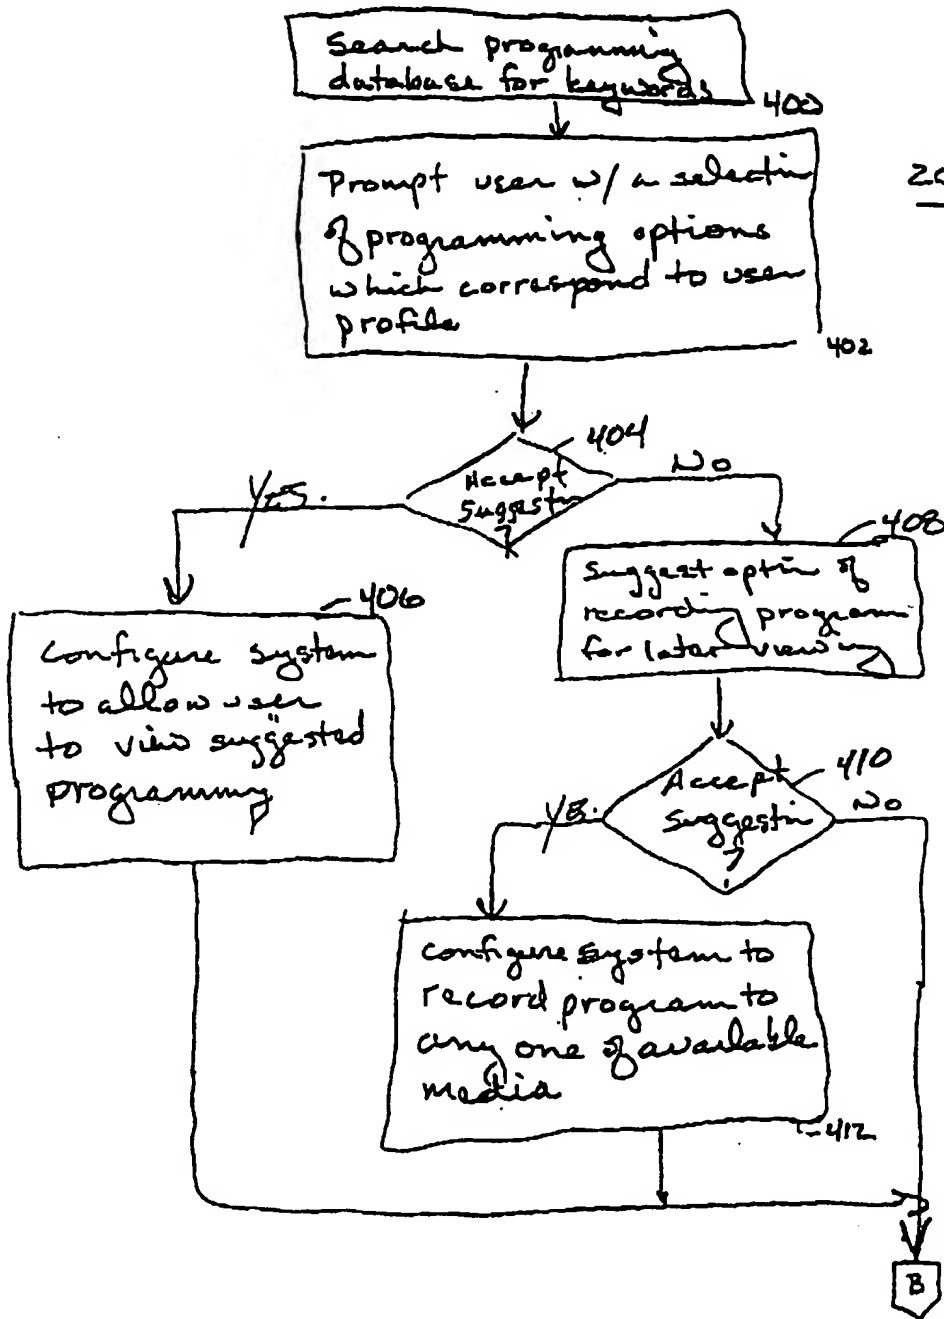 Search programming
database for keywords
400
Prompt user w/ a selectin
of programming options
which correspond to user
profile
402
404
Accept
suggestin
?
YES.
No
408
suggest optin of
recording program
for later viewing
406
configure system
to allow user
to view suggested
programming
410
Accept
suggestin
?
YES.
No
configure system to
record program to
any one of available
media
412
B